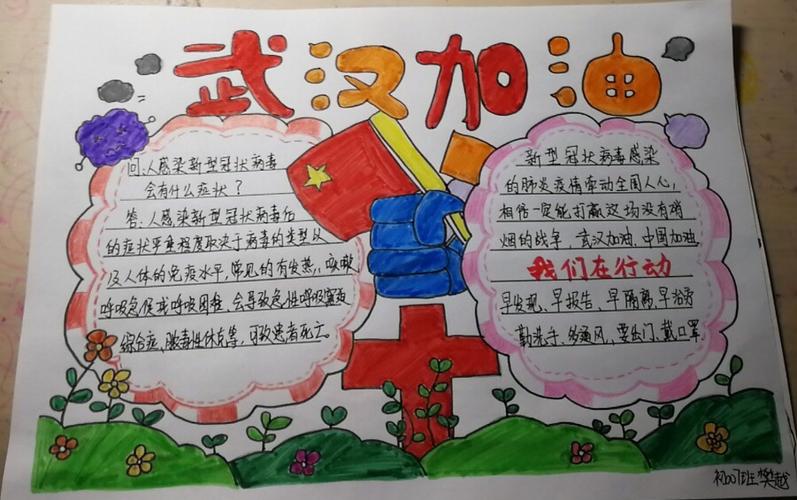 武汉加油
问:人感染新型冠状病毒
会有什么症状？
答:人感染新型冠状病毒后
的症状严重程度取决于病毒的类型以
及人体的免疫水平,常见的有发热、咳嗽
呼吸急促或呼吸困难、会导致急性呼吸窘迫
综合症、脓毒性休克等,可致患者死亡。
新型冠状病毒感染
的肺炎疫情牵动全国人心,
相信一定能打赢这场没有硝
烟的战争,武汉加油,中国加油
我们在行动
早发现、早报告、早隔离,早治疗
勤洗手、多通风、要出门、戴口罩
初007班樊越